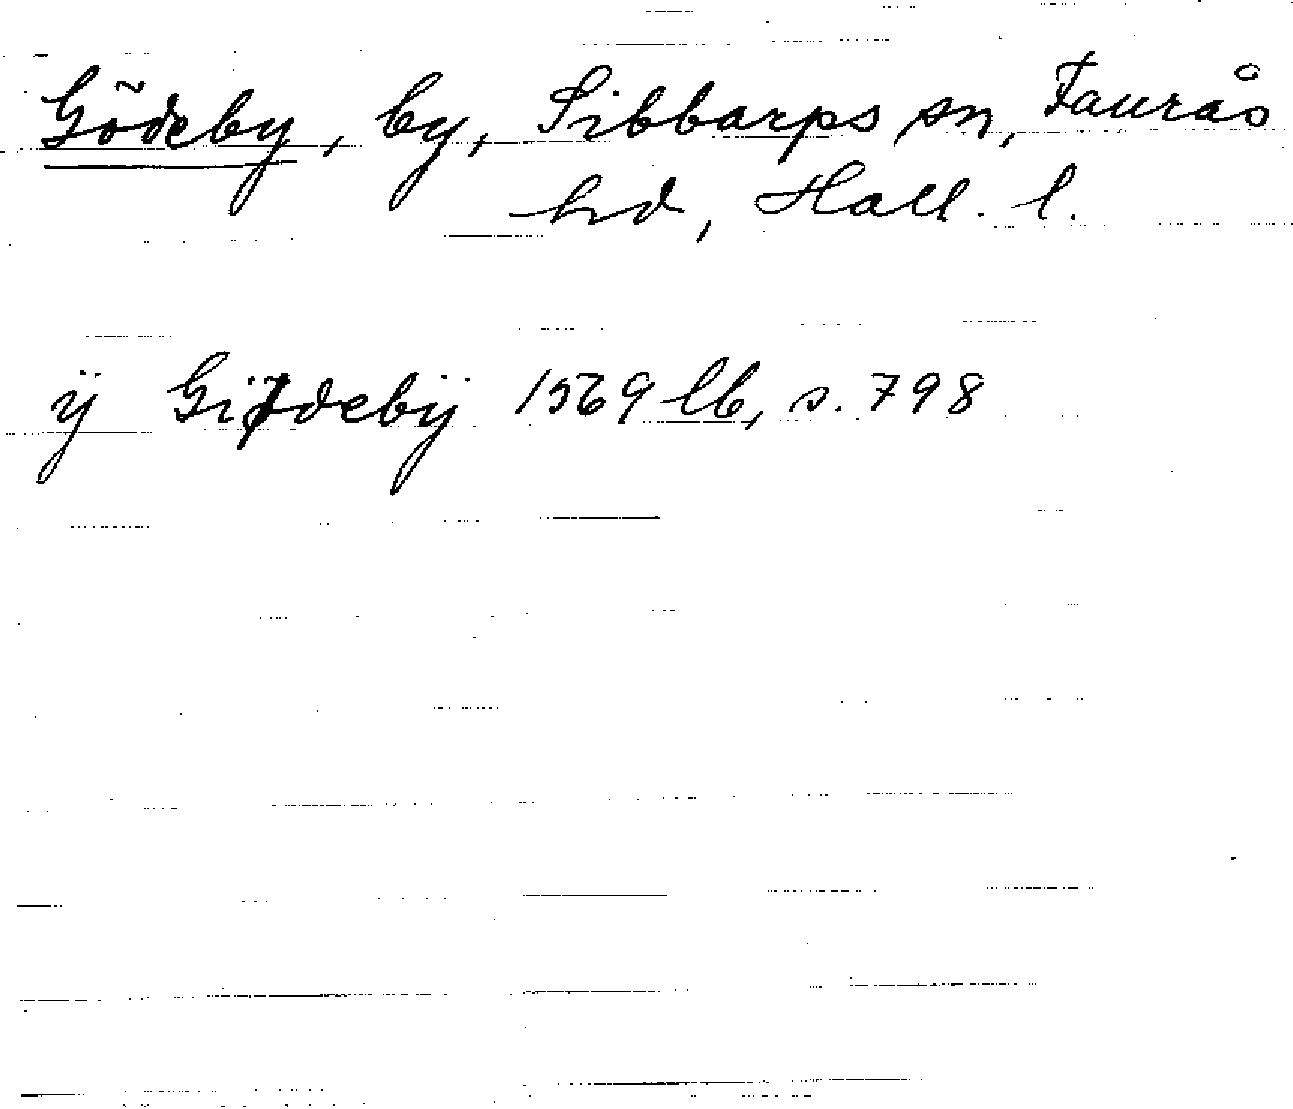 Gödeby, by, Sibbarps sn, Faurås
hd, Hall. l.
ÿ Giødebÿ 1569 lb, s. 798